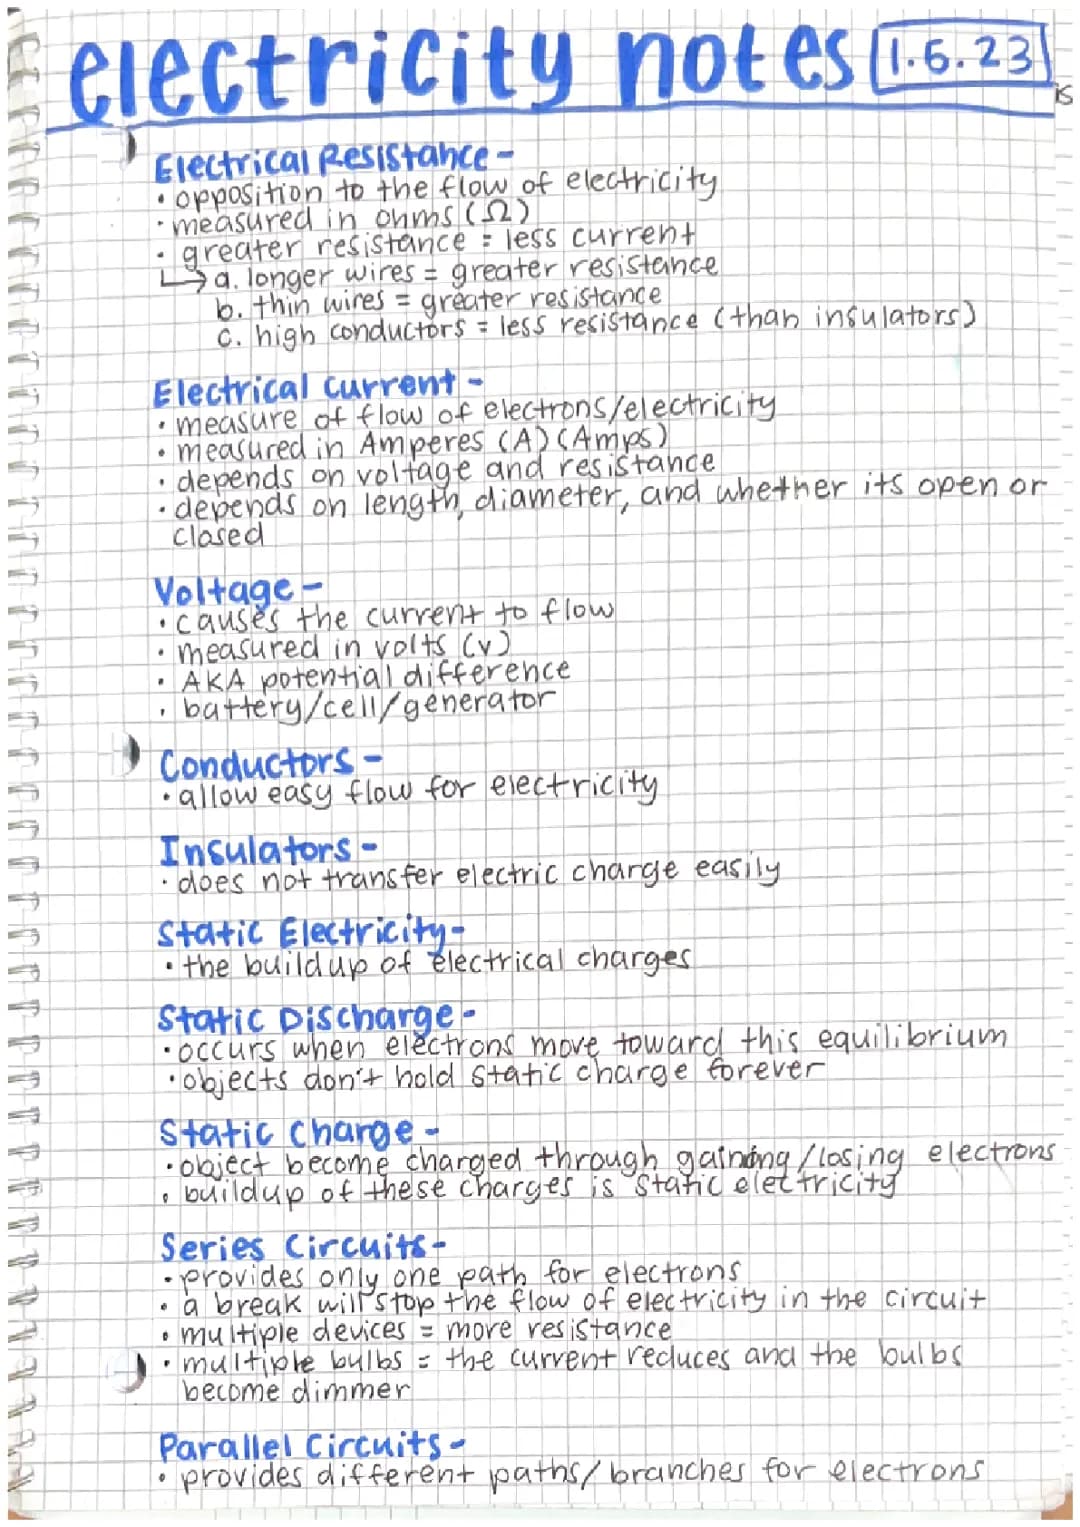 electricity notes 1.6.23
is
Electrical Resistance -
• opposition to the flow of electricity
• measured in ohms (Ω)
• greater resistance = less current
↳ a. longer wires = greater resistance
b. thin wires = greater resistance
c. high conductors = less resistance (than insulators)
Electrical current -
• measure of flow of electrons/electricity
• measured in Amperes (A) (Amps)
• depends on voltage and resistance
• depends on length, diameter, and whether its open or
closed
Voltage -
• causes the current to flow
• measured in volts (v)
• AKA potential difference
• battery/cell/generator
Conductors -
• allow easy flow for electricity
Insulators -
• does not transfer electric charge easily
Static Electricity -
• the buildup of electrical charges
Static Discharge -
• occurs when electrons move toward this equilibrium
• objects don't hold static charge forever
Static Charge -
• object become charged through gaining/losing electrons
• buildup of these charges is static electricity
Series Circuits -
• provides only one path for electrons
• a break will stop the flow of electricity in the circuit
• multiple devices = more resistance
• multiple bulbs = the current reduces and the bulbs
become dimmer
Parallel Circuits -
• provides different paths/branches for electrons